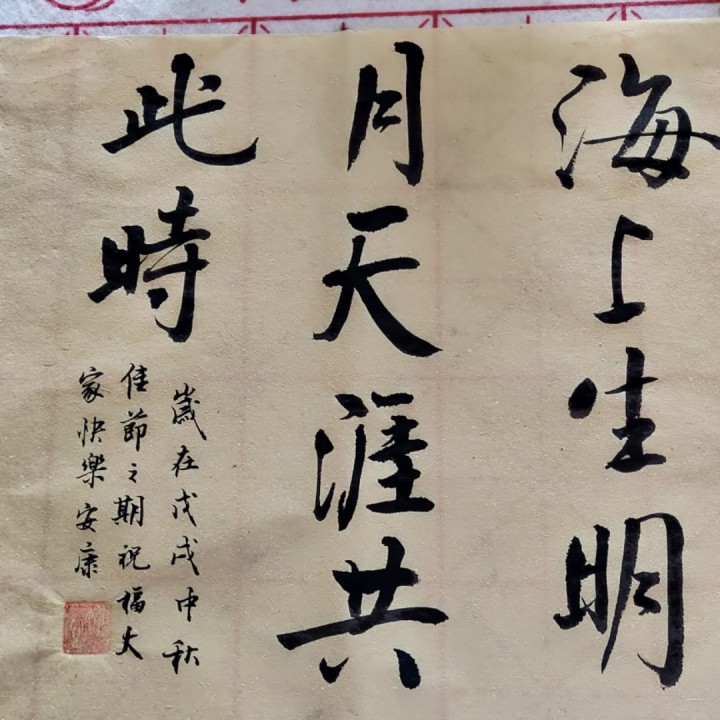 海上生明
月天涯共
此時
歲在戊戌中秋
佳節之期祝福大
家快樂安康